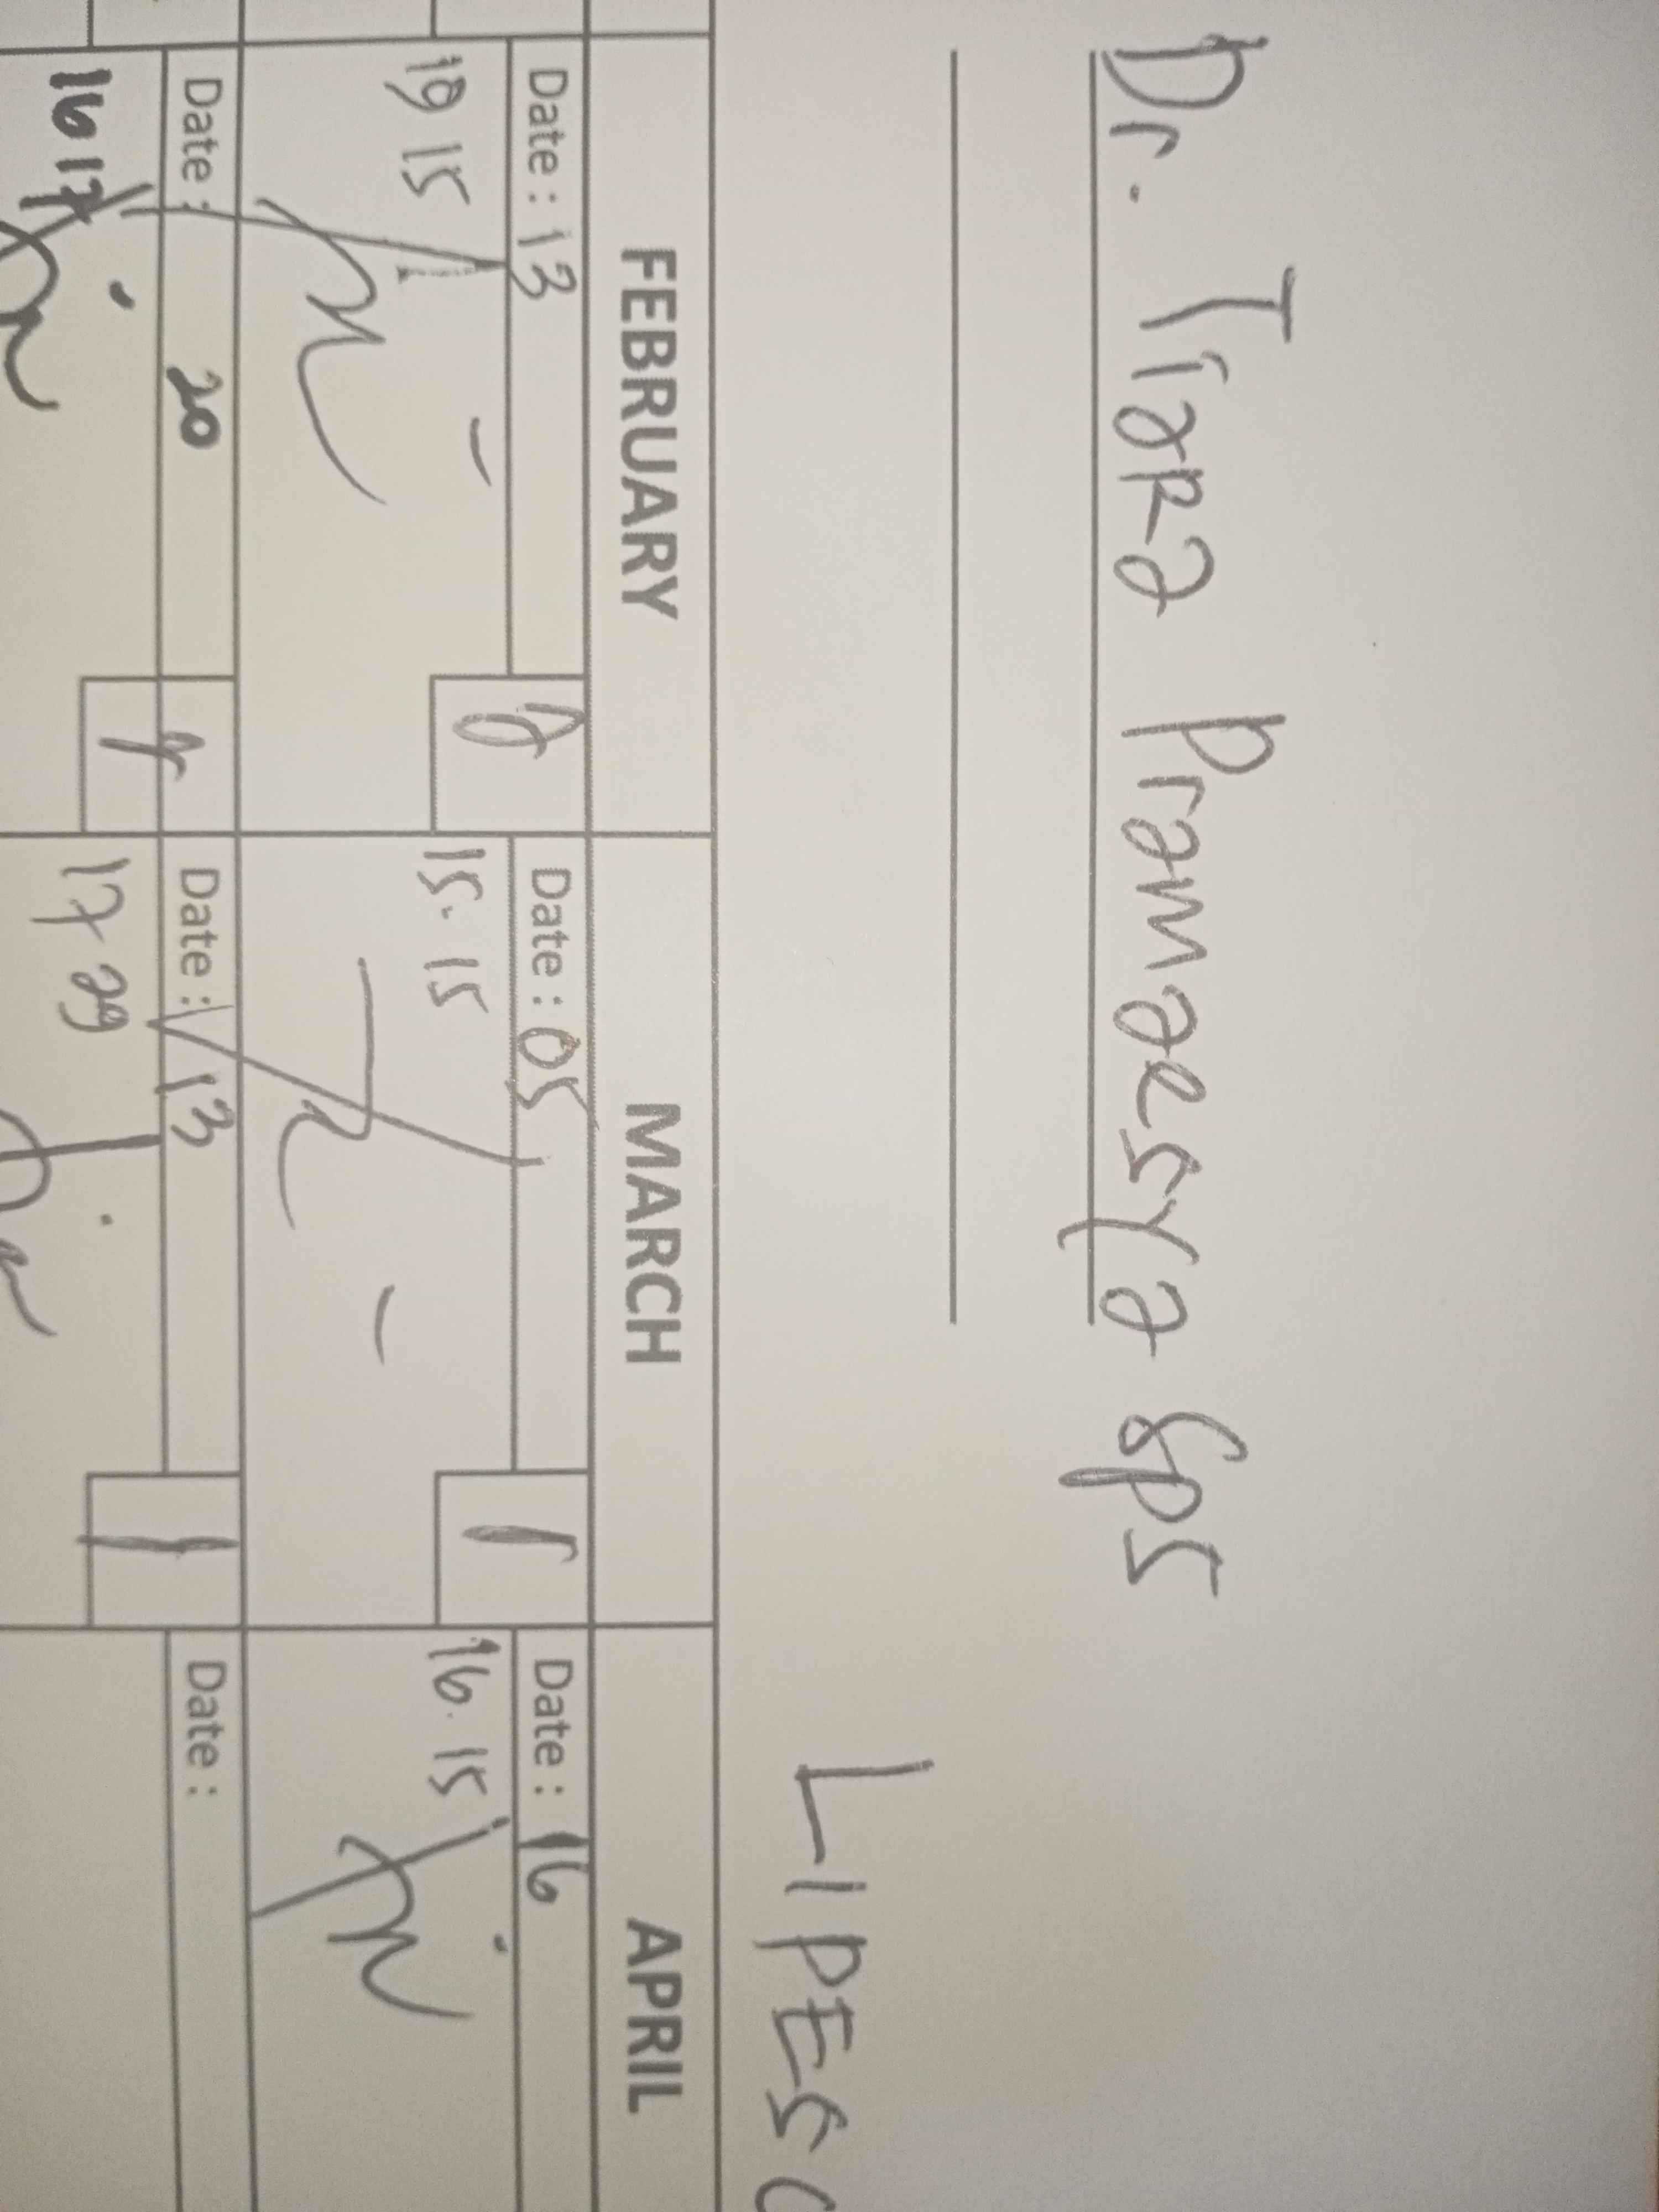 Dr. Tiara Pramaesya SpS
LIPESC
FEBRUARY MARCH APRIL
Date : 13 Date : 05 Date : 16
19 15 15. 15 16. 15
Date : 20 Date : 13 Date :
16 17 17 29